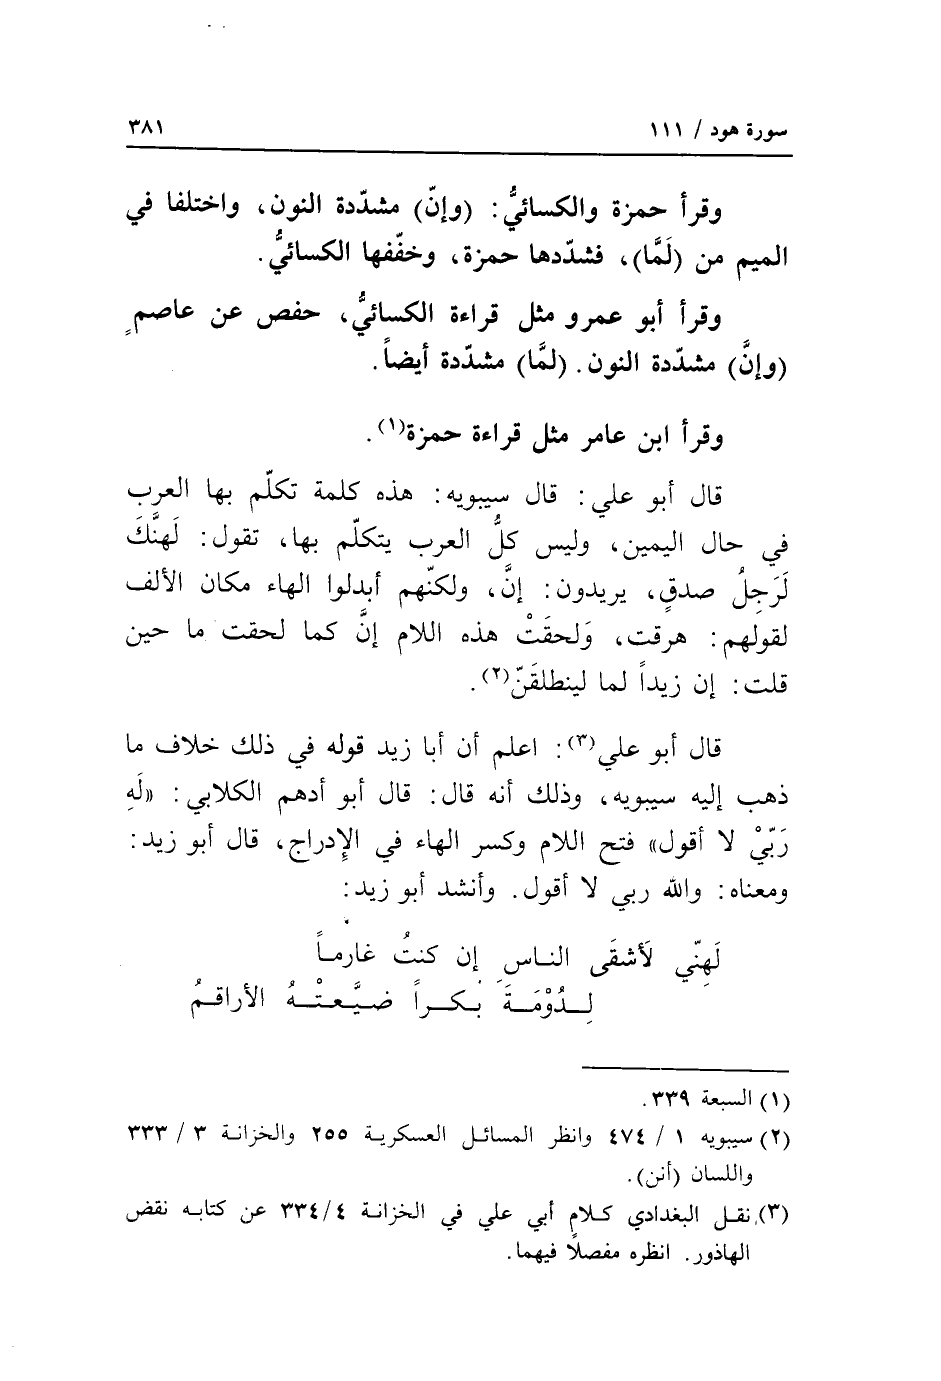 سورة هود / ١١١
٣٨١
وقرأ حمزة والكسائيُّ: (وإنّ) مشدّدة النون، واختلفا في
الميم من (لَمَّا)، فشدّدها حمزة، وخفّفها الكسائيُّ.
وقرأ أبو عمرو مثل قراءة الكسائيُّ، حفص عن عاصمٍ
(وإنَّ) مشدّدة النون. (لمَّا) مشدّدة أيضاً.
وقرأ ابن عامر مثل قراءة حمزة(١).
قال أبو علي: قال سيبويه: هذه كلمة تكلّم بها العرب
في حال اليمين، وليس كلُّ العرب يتكلّم بها، تقول: لَهِنَّكَ
لَرَجلُ صدقٍ، يريدون: إنَّ، ولكنّهم أبدلوا الهاء مكان الألف
لقولهم: هرقت، وَلحقَتْ هذه اللام إنَّ كما لحقت ما حين
قلت: إن زيداً لما لينطلقَنّ(٢).
قال أبو علي(٣): اعلم أن أبا زيد قوله في ذلك خلاف ما
ذهب إليه سيبويه، وذلك أنه قال: قال أبو أدهم الكلابي: «لَهِ
رَبّيْ لا أقول» فتح اللام وكسر الهاء في الإدراج، قال أبو زيد:
ومعناه: والله ربي لا أقول. وأنشد أبو زيد:
لَهِنّي لَأشقَى الناسِ إن كنتُ غارماً
لِدُوْمَةَ بكراً ضيَّعتْهُ الأراقمُ
(١) السبعة ٣٣٩.
(٢) سيبويه ١ / ٤٧٤ وانظر المسائل العسكرية ٢٥٥ والخزانة ٣ / ٣٣٣
واللسان (أنن).
(٣) نقل البغدادي كلام أبي علي في الخزانة ٣٣٤/٤ عن كتابه نقض
الهاذور. انظره مفصلًا فيهما.